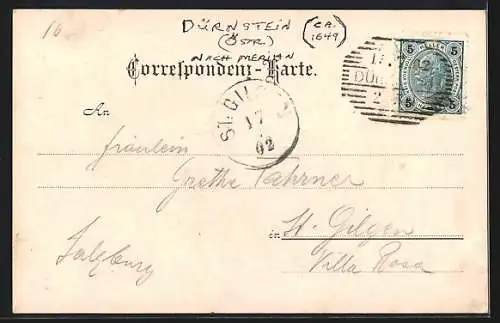 16
DÜRNSTEIN
(ÖSTR.)
CA. 1649
NACH MERIAN
Correspondenz-Karte.
5 HELLER 5
5 5
DÜR
ST. GILGEN
17
02
An
Fräulein
Grethe Fahrner
in St. Gilgen
Salzburg
Villa Rosa